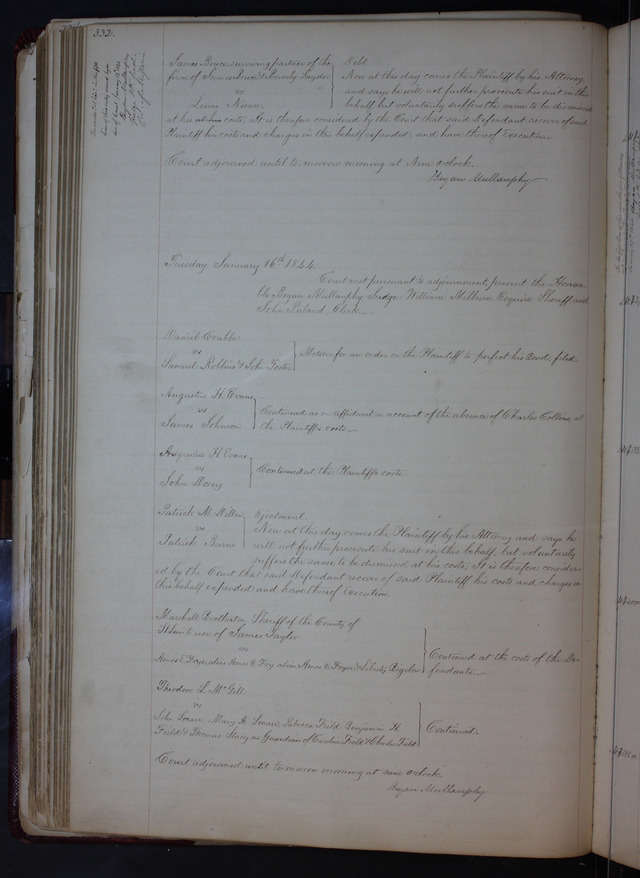 332.
James Bryce surviving partner of the
firm of James Bryce &
vs
Debt
Now at this day comes the Plaintiff by his Attorney
and says he will not further prosecute his suit in this
behalf but voluntarily suffers the same to be dismissed
at his costs, It is therefore considered by the Court that said Defendant recover of said
Plaintiff his costs and charges in this behalf expended, and have thereof Execution.
Court adjourned until to morrow morning at Nine oclock.
Bryan Mullanphy
Tuesday January 16th 1844.
Court met pursuant to adjournment, present the Honora
ble Bryan Mullanphy Judge, William Milburn Esquire Sheriff and
John Ruland Clerk.
Daniel Crabb
vs
Samuel Robbins & John Foster
Motion for an order on the Plaintiff to perfect his Bond, filed.
Augustus H. Evans
vs
James Johnson
Continued as on affidavit on account of the absence of Charles Collins, at
the Plaintiffs costs.
Augustus H Evans
vs
John Dovey
Continued at the Plaintiffs costs.
Patrick M. Dillon
vs
Patrick Burns
Ejectment.
Now at this day comes the Plaintiff by his Attorney and says he
will not further prosecute his suit in this behalf, but voluntarily
suffers the same to be dismissed at his costs; It is therefore consider-
ed by the Court that said Defendant recover of said Plaintiff his costs and charges in
this behalf expended and have thereof Execution.
Marshall Brotherton Sheriff of the County of
St Louis to use of James Taylor
vs
alias alias Liberty Bigelow
Continued at the costs of the De-
fendants.
Theodore L. McGill
vs
John Simonds, Mary A. Rebecca Field Benjamin H.
Field & Thomas as Guardian of Caroline Field & Charles Field
Continued.
Court adjourned until to morrow morning at nine oclock.
Bryan Mullanphy